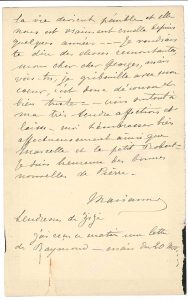 la vie devient pénible et elle
nous est vraiment cruelle depuis
quelques années — Je voudrais
te dire des choses consolantes,
mon cher des Georges, mais
vois-tu, je griffonne avec mon
cœur, c'est donc décousu et
bien triste — sois surtout à
ma très tendre affection et
laisse-moi t'embrasser bien
affectueusement ainsi que
Marcelle et le petit Robert
Je suis heureuse des bonnes
nouvelles de Pierre.
Marianne
tendresse de Zizi
J'ai reçu ce matin une lettre
de Raymond — mais du 20